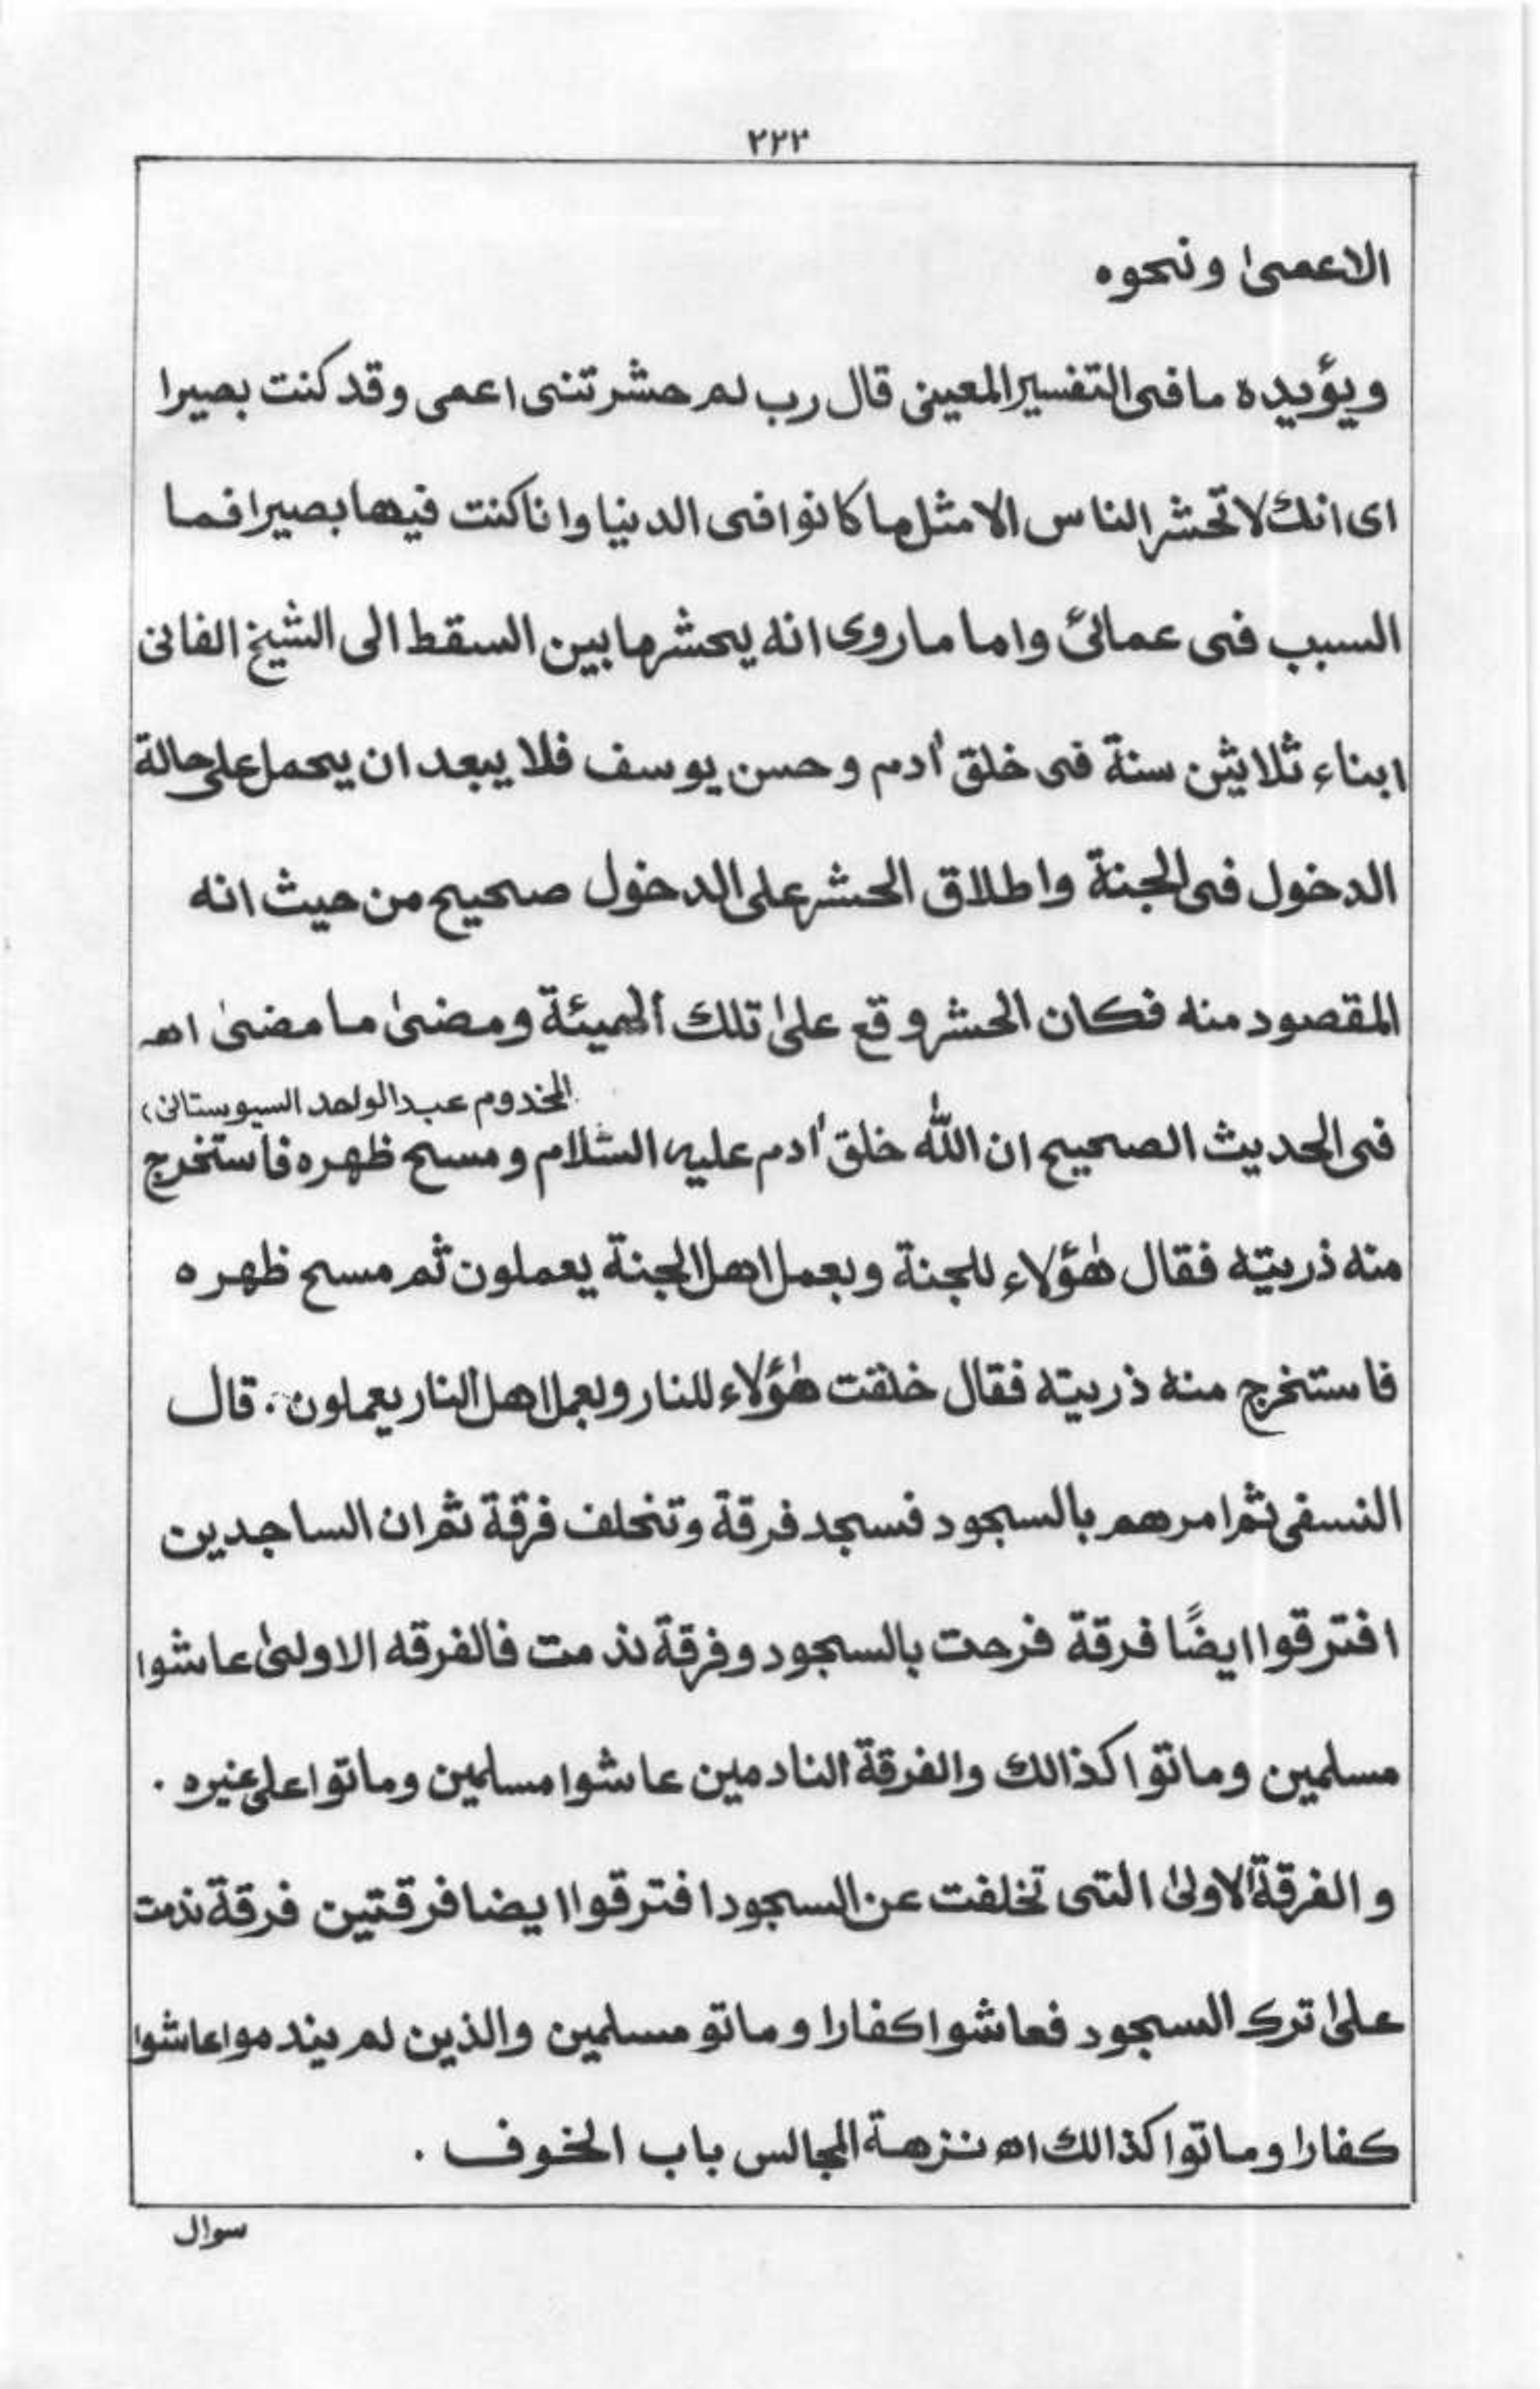 ۲۲۳
الاعمىٰ ونحوه
ويؤيده مافى التفسير المعينى قال رب لم حشرتنى اعمى وقد كنت بصيرا
اى انك لا تحشر الناس الا مثل ما كانوا فى الدنيا وانا كنت فيها بصيرا فما
السبب فى عمائى واما ماروى انه يحشر مابين السقط الى الشيخ الفانى
ابناء ثلاثين سنة فى خلق أدم وحسن يوسف فلا يبعد ان يحمل على حالة
الدخول فى الجنة واطلاق الحشر على الدخول صحيح من حيث انه
المقصود منه فكان الحشر وقع علىٰ تلك الهيئة ومضىٰ ما مضىٰ اهـ
المخدوم عبدالواحد السيوستانى)
فى الحديث الصحيح ان الله خلق أدم عليه السّلام ومسح ظهره فاستخرج
منه ذريته فقال هٰؤلاء للجنة وبعمل اهل الجنة يعملون ثم مسح ظهره
فاستخرج منه ذريته فقال خلقت هٰؤلاء للنار وبعمل اهل النار يعملون. قال
النسفى ثم امرهم بالسجود فسجد فرقة وتخلف فرقة ثم ان الساجدين
افترقوا ايضًا فرقة فرحت بالسجود وفرقة نذمت فالفرقه الاولىٰ عاشوا
مسلمين وماتوا كذالك والفرقة النادمين عاشوا مسلمين وماتوا على غيره .
والفرقة الاولىٰ التى تخلفت عن السجود افترقوا ايضا فرقتين فرقة نذمت
علىٰ ترك السجود فعاشوا كفارا وماتو مسلمين والذين لم يندموا عاشوا
كفارا وماتوا كذالك اھ نزهة المجالس باب الخوف .
سوال